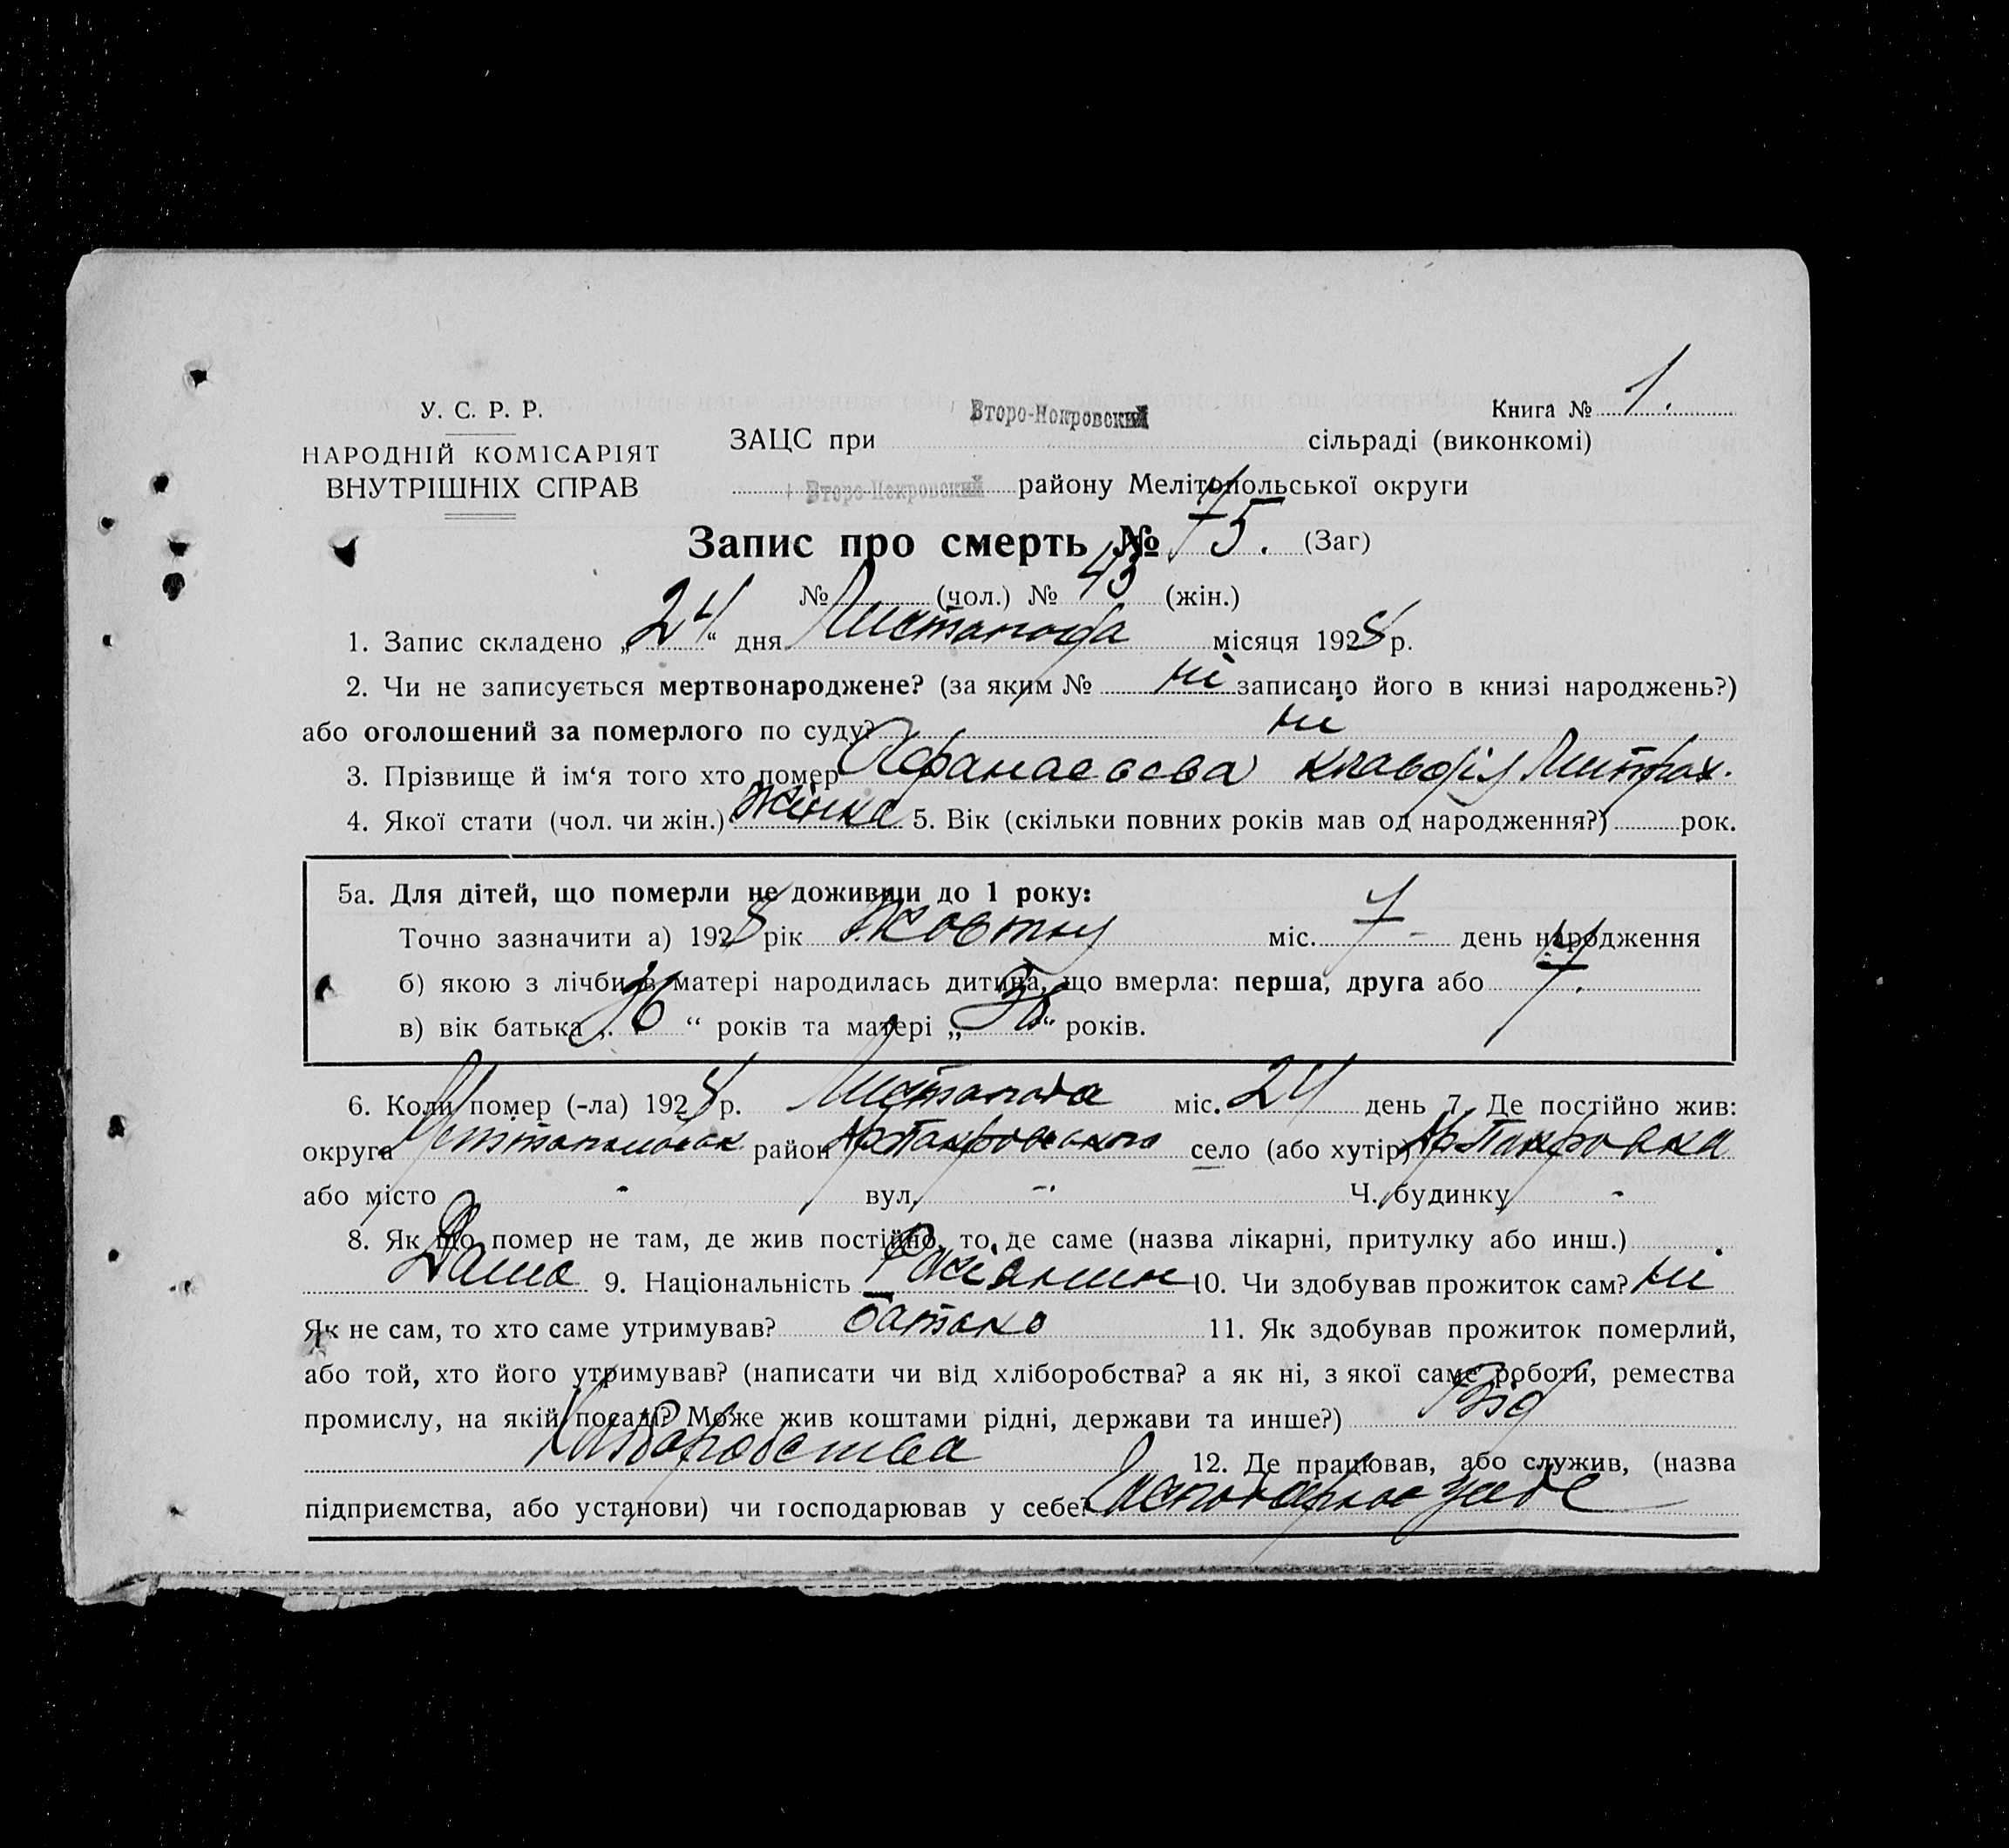 У. С. Р. Р.
НАРОДНІЙ КОМІСАРІЯТ
ВНУТРІШНІХ СПРАВ
Книга № 1.
ЗАЦС при Второ-Покровский сільраді (виконкомі)
Второ-Покровский району Мелітопольської округи
Запис про смерть № 75. (Заг)
№ (чол.) № 43 (жін.)
1. Запис складено „24“ дня Листопада місяця 1928 р.
2. Чи не записується мертвонароджене? (за яким № ні записано його в книзі народжень?)
або оголошений за померлого по суду? ні
3. Прізвище й ім‘я того хто помер Афанасьєва Клавдія Митроф.
4. Якої стати (чол. чи жін.) Жінка 5. Вік (скільки повних років мав од народження?) рок.
5а. Для дітей, що померли не доживши до 1 року:
Точно зазначити а) 1928 рік Жовтня міс. 7 - день народження
б) якою з лічби в матері народилась дитина, що вмерла: перша, друга або 7.
в) вік батька „36“ років та матері „“ років.
6. Коли помер (-ла) 1928 р. Листопада міс. 24 день 7. Де постійно жив:
округа район село (або хутір)
або місто - вул. - Ч. будинку -
8. Як що помер не там, де жив постійно, то де саме (назва лікарні, притулку або инш.)
Дома 9. Національність Росіянин 10. Чи здобував прожиток сам? ні
Як не сам, то хто саме утримував? батько 11. Як здобував прожиток померлий,
або той, хто його утримував? (написати чи від хліборобства? а як ні, з якої саме роботи, ремества
промислу, на якій посаді? Може жив коштами рідні, держави та инше?) Від
Хліборобства 12. Де працював, або служив, (назва
підприємства, або установи) чи господарював у себе?